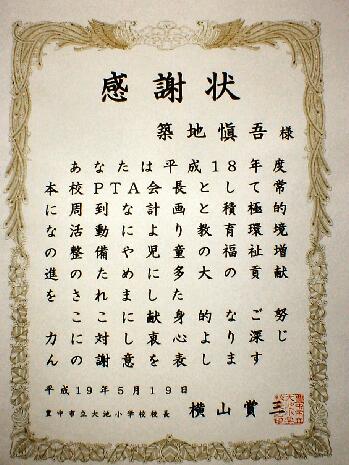 感謝状
築地愼吾 様
あなたは平成18年度
本校PTA会長として常
に周到な計画と積極的
な活動により教育環境
の整備や児童の福祉増
進のために多大の貢献
をされました
ここに献身的なご努
力に対し衷心より深
謝意を表します
平成19年5月19日
豊中市立大池小学校校長 横山賞三